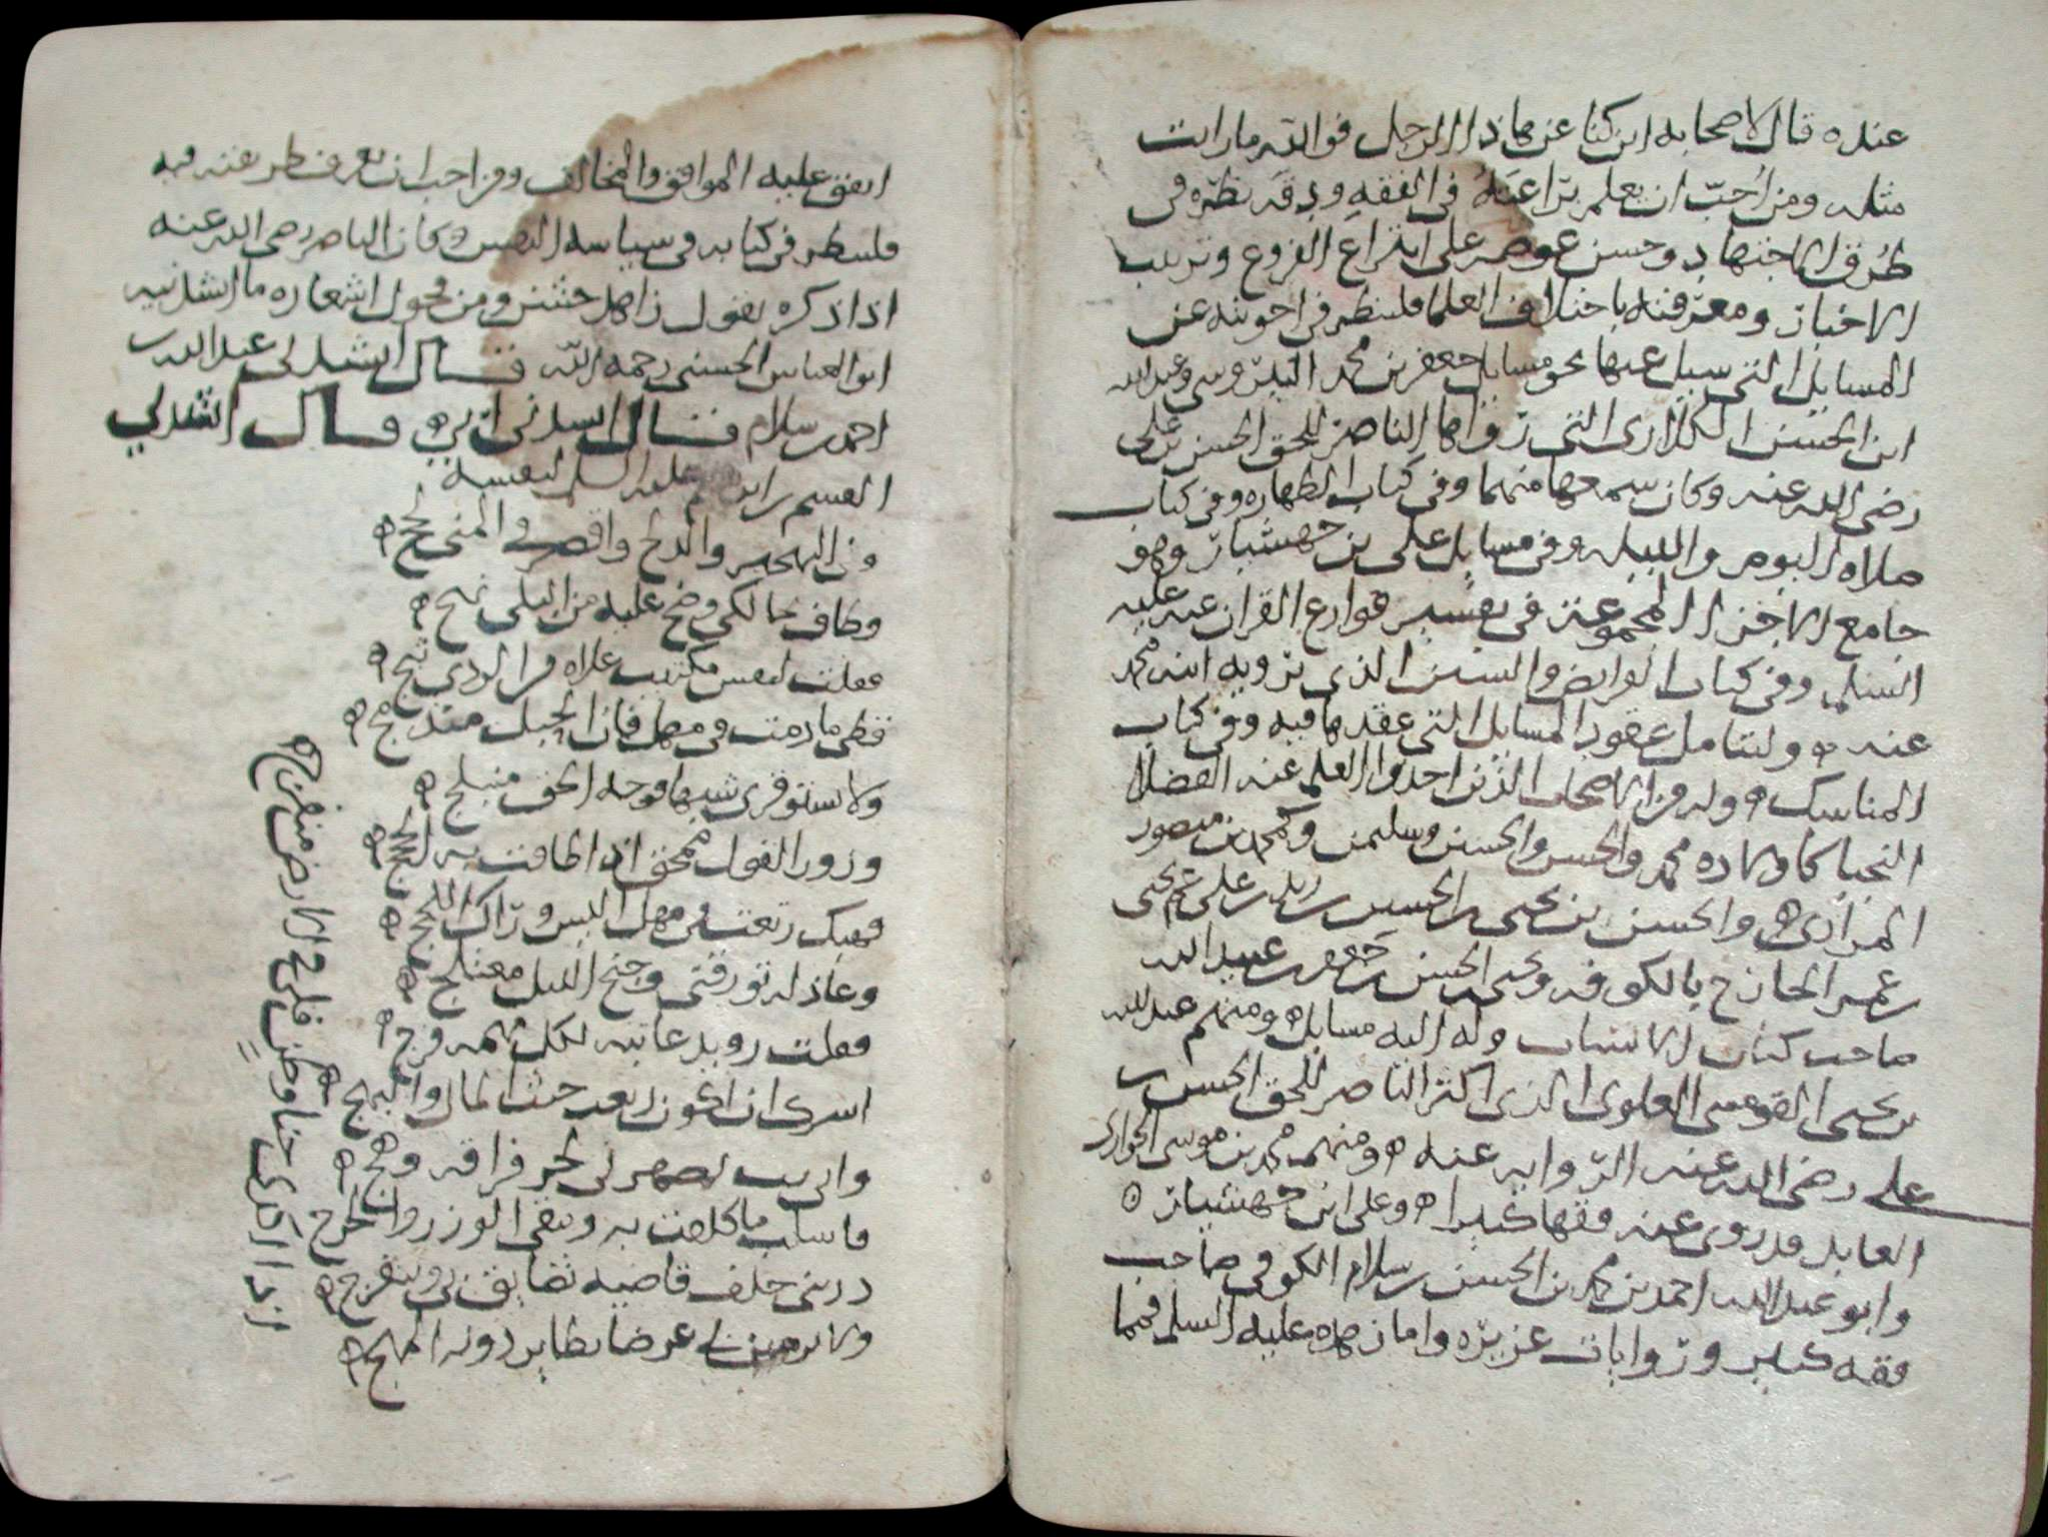 عنده قال لاصحابه اين كنا عن هاذا الرجل فوالله ما رايت
مثله ومن احب ان يعلم براعته في الفقه ودقه نظره في
طرق الاجتهاد وحسن غوصه على انتزاع الفروع وترتيب
الاخبار ومعرفته باختلاف العلما فلينظر في اجوبته عن
المسايل التي سيل عنها نحو مسايل جعفر بن محمد النيروسي وعبدالله
ابن الحسن الكلاري التي رواها الناصر للحق الحسن بن علي
رضى الله عنه وكان سمعها منهما وفي كتاب الطهاره وفي كتاب
صلاه اليوم والليله وفي مسايل علي بن جهشيار وهو
جامع الاجزا المجموعة في تفسير قوارع القران عنه عليه
السلم وفي كتاب الفرايض والسنن الذي يرويه ابنه محمد
عنه وليتامل عقود المسايل التي عقدها فيه وفي كتاب
المناسك وله من الاصحاب الذين اخذوا العلم عنه الفضلا
النجبا كاولاده محمد والحسن والحسين وسليمن وكمحمد بن منصور
المرادي والحسن بن يحيى بن الحسين بن زيد بن علي
بن عمر الخارج بالكوفه ويحيى بن الحسن بن جعفر بن عبيد الله
صاحب كتاب الانساب وله اليه مسايل ومنهم عبدالله
بن يحيى القومسي العلوي الذي اكثر الناصر للحق الحسن بن
علي رضى الله عنه الروايه عنه ومنهم محمد بن موسى الحواري
العابد قد روى عنه فقها كثيرا وعلي ابن جهشيار
وابو عبدالله احمد بن محمد بن الحسن بن سلام الكوفي صاحب
فقه كثير وروايات غزيره واما زهده عليه السلم فمما
اتفق عليه الموافق والمخالف ومن احب ان يعرف طريقته فيه
فلينظر في كتابه في سياسه النفس وكان الناصر رضى الله عنه
اذا ذكره يقول زاهد خشن ومن فحول اشعاره ما انشدنيه
ابو العباس الحسني رحمه الله قال انشدني عبدالله بن
احمد بن سلام قال انشدني ابي قال انشدني
القسم بن ابرهيم عليه السلم لنفسه
دنى التهجير والدلج واقصر في المنى لحج
وطاف بحالكي وضح عليه من البلى نهج
فقلت لنفس مكتيب علاه من الردى ثبج
قطي ما دمت في مهل فان الحبل مندمج
ولا تستوقري شبها فوجه الحق منبلج
وزور القول ممحق اذا طافت به الحجج
فهبك رتعت في مهل اليس وراك اللجج
وعاذله تورقني وجنح الليل معتلج
فقلت رويد عاتبه لكل مهمه فرج
اسرك ان اكون رتعت حيث المال والبهج
واني بت يصهرني لحر فراقه وهج
فاسلب ما كلفت به ويبقى الوزر والحرج
ذريني خلف قاضيه تضايق بي وينفرج
ولا ترمين بي غرضا تطاير دونه المهج
اذا اكدى جنا وطن فلي في الارض منفرج